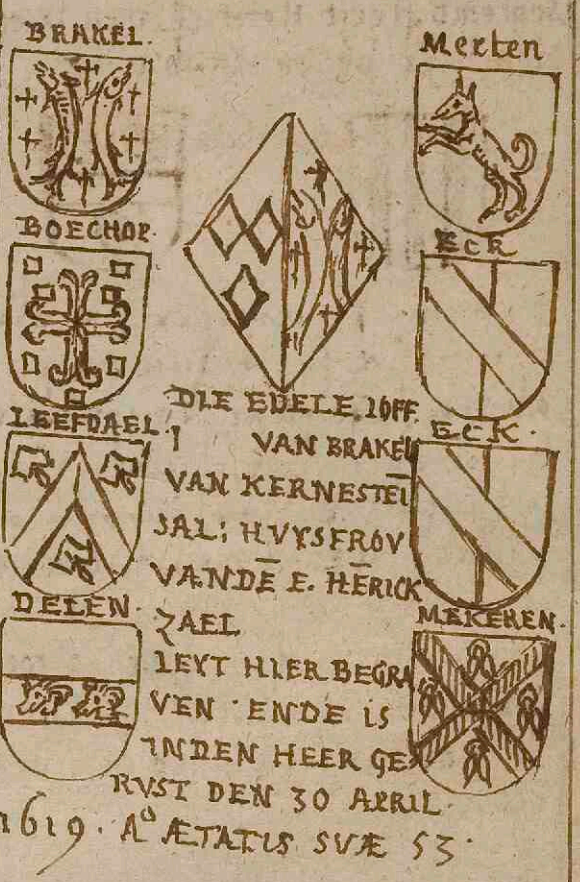 BRAKEL.
Merten
BOECHOP.
ECK
LEEFDAEL.
ECK.
DELEN.
MEKEREN.
DIE EDELE IOFF.
I VAN BRAKEL
VAN KERNESTEI
SAL: HVYSFROV
VANDĒ E. HĒRICK
ZAEL
LEYT HIER BEGRA
VEN ENDE IS
INDEN HEER GE
RVST DEN 30 APRIL.
1619. Aº ÆTATIS SVÆ 53.